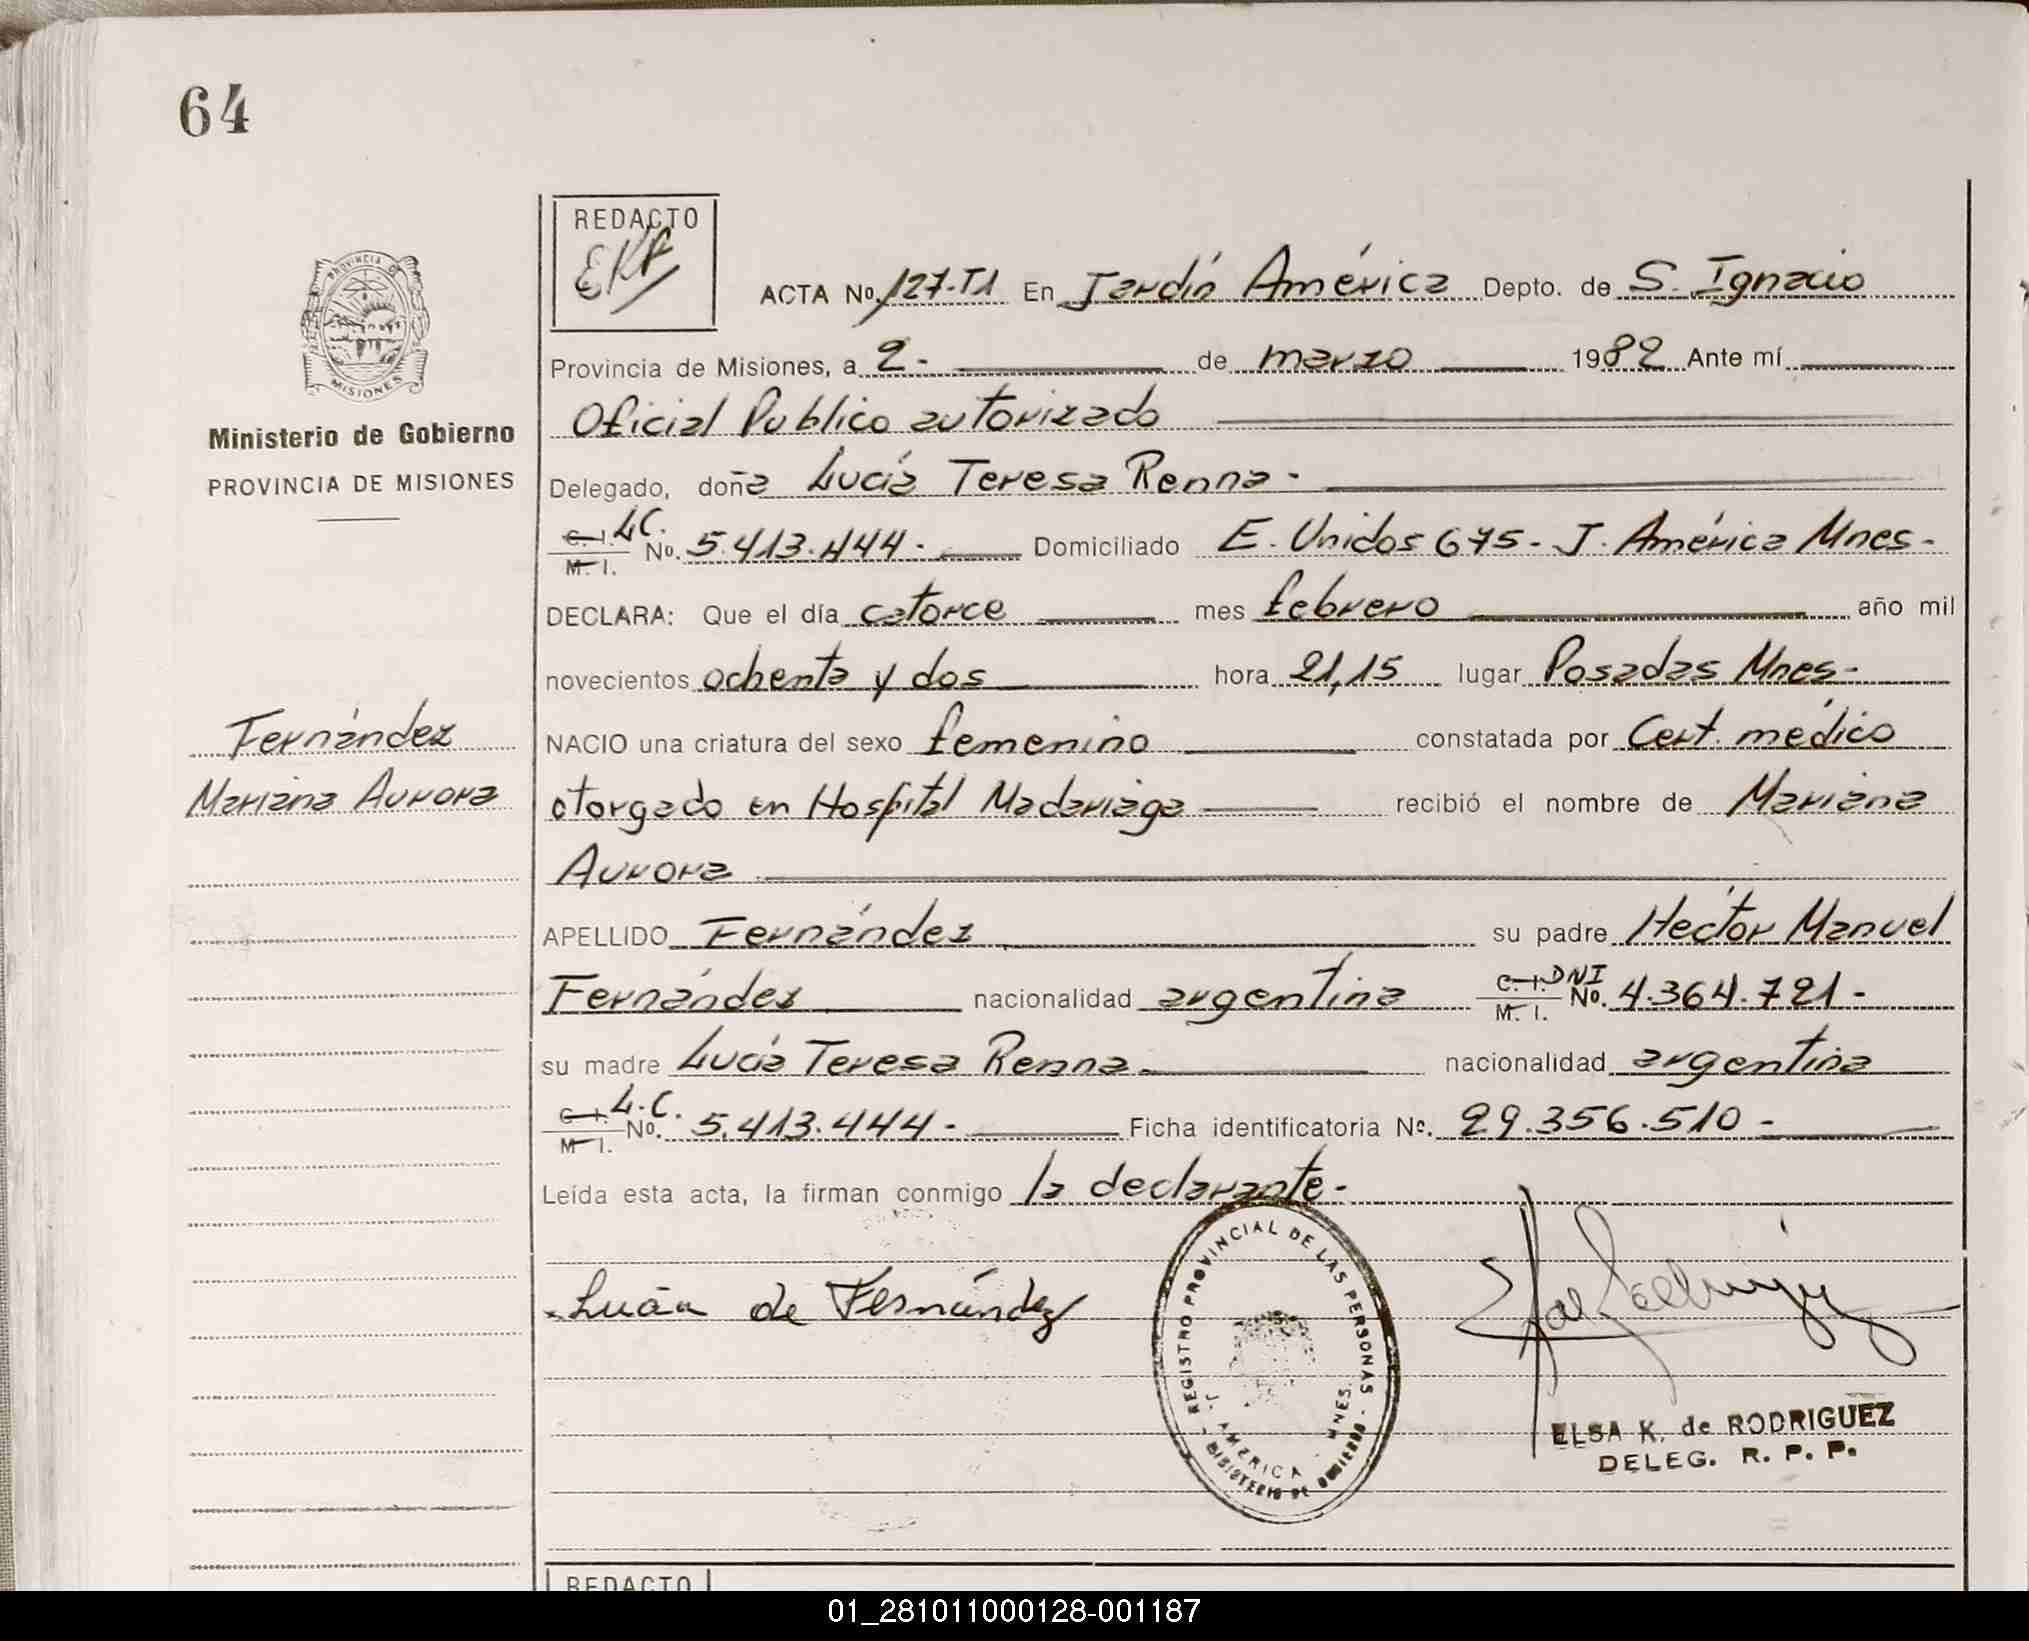 64
REDACTO
PROVINCIA DE
MISIONES
ACTA No. 127-T1 En Jardín América Depto. de S. Ignacio
Provincia de Misiones, a 2.- de marzo 1982 Ante mí
Ministerio de Gobierno
PROVINCIA DE MISIONES
Oficial Publico autorizado
Delegado, doña Lucía Teresa Renna.-
C. I. L.C.
M. I. No. 5.413.444.- Domiciliado E. Unidos 675- J. América Mnes-
DECLARA: Que el día catorce mes febrero año mil
novecientos ochenta y dos hora 21,15 lugar Posadas Mnes-
Fernández
Mariana Aurora
NACIO una criatura del sexo femenino constatada por Cert. médico
otorgado en Hospital Madariaga recibió el nombre de Mariana
Aurora
APELLIDO Fernández su padre Héctor Manuel
Fernández nacionalidad argentina C. I. DNI M. I. No. 4.364.721-
su madre Lucía Teresa Renna nacionalidad argentina
C. I. L.C.
M. I. No. 5.413.444- Ficha identificatoria No. 29.356.510-
Leída esta acta, la firman conmigo la declarante-
Lucía de Fernández
REGISTRO PROVINCIAL DE LAS PERSONAS
J. AMERICA - MNES.
MINISTERIO DE GOBIERNO
ELSA K. de RODRIGUEZ
DELEG. R. P. P.
REDACTO
01_281011000128-001187